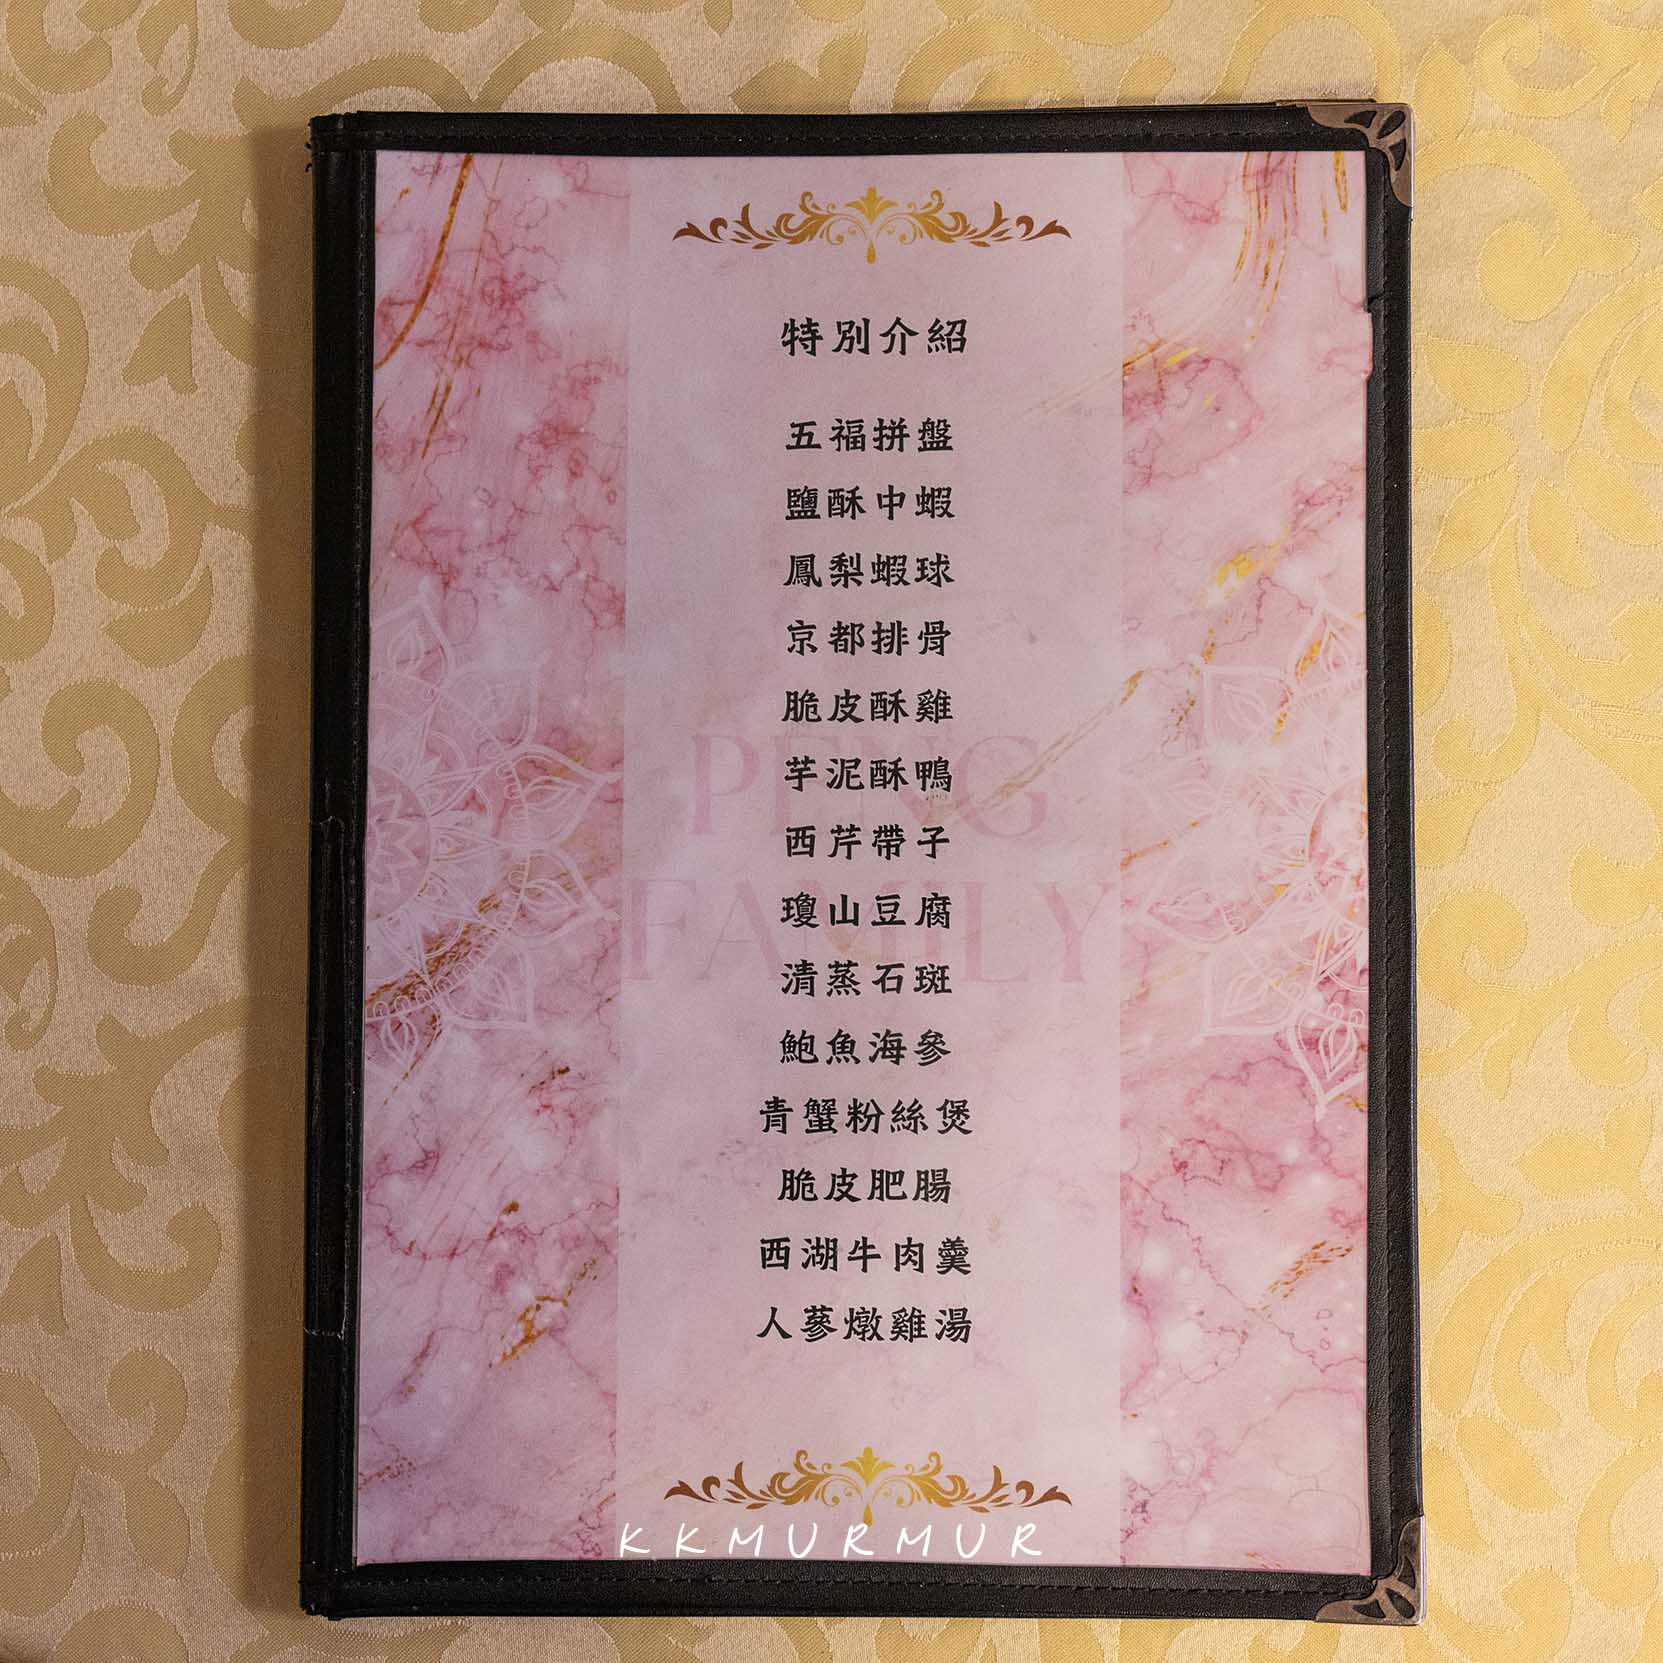 特別介紹
五福拼盤
鹽酥中蝦
鳳梨蝦球
京都排骨
脆皮酥雞
芋泥酥鴨
西芹帶子
瓊山豆腐
清蒸石斑
鮑魚海參
青蟹粉絲煲
脆皮肥腸
西湖牛肉羹
人蔘燉雞湯
PENG
FAMILY
KKMURMUR